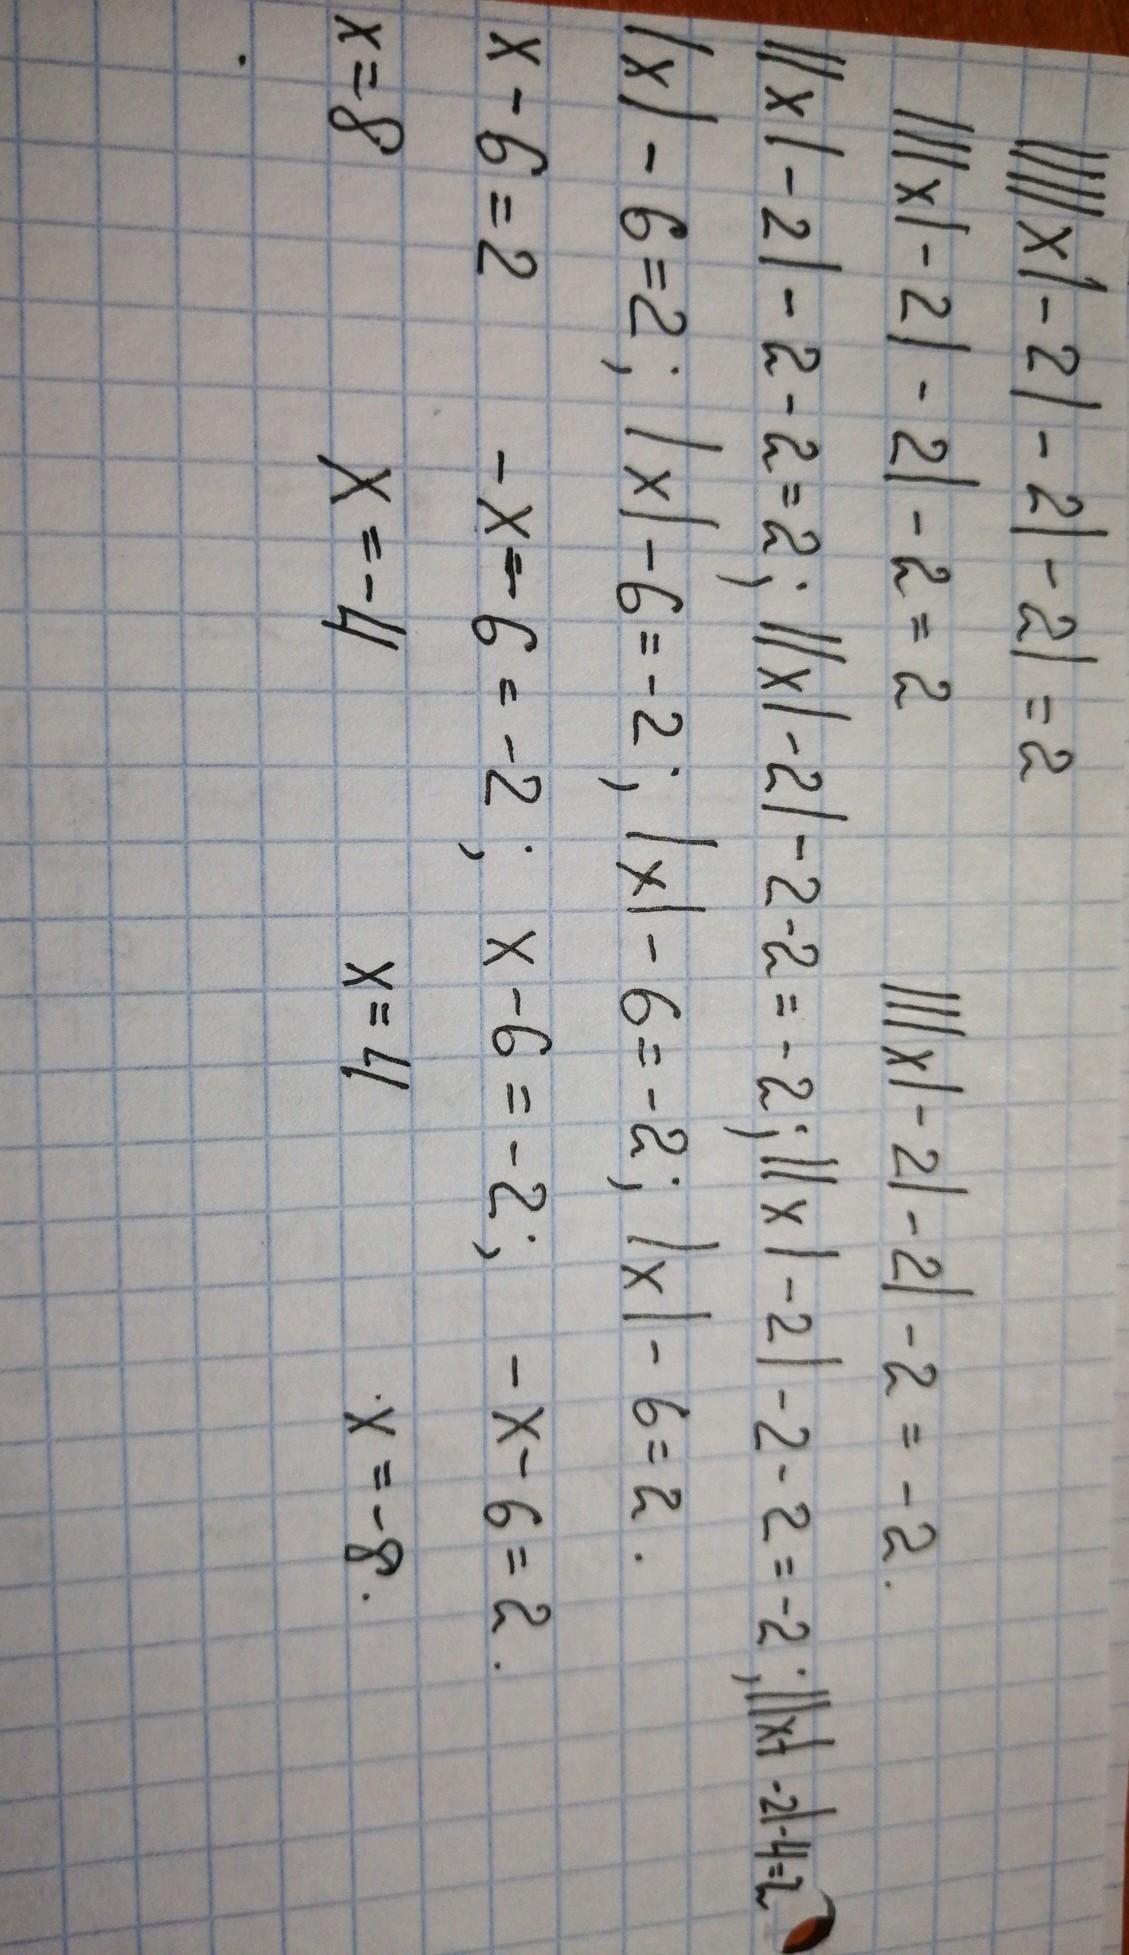 |||||x|-2|-2|-2|=2
||||x|-2|-2|-2=2 ||||x|-2|-2|-2=-2.
|||x|-2|-2-2=2; |||x|-2|-2-2=-2; |||x|-2|-2-2=-2; |||x|-2|-4=2
|x|-6=2; |x|-6=-2; |x|-6=-2; |x|-6=2.
x-6=2 -x-6=-2; x-6=-2; -x-6=2.
x=8 x=-4 x=4 x=-8.